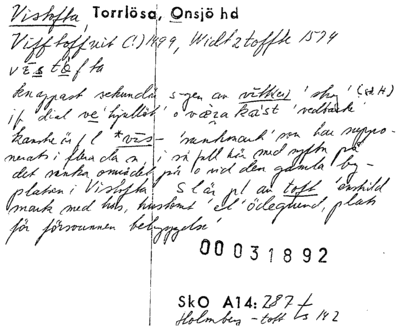 Vistofta, Torrlösa, Onsjö hd
Vifftofftuit (!) 1499, Widtztoffte 1574
vēstofta
knappast sekundär s-gen av vitker 'skog' (sd H)
jf dial ve 'hjullöt' o
kanske är f l *vis- 'sankmark' som har suppo-
nerats i flera da n i så fall här med syftn på
det sanka området på o vid den gamla by-
platsen i Vistofta. S l är pl av toft 'enskild
mark med hus, hustomt' el 'ödegrund, plats
för försvunnen bebyggelse'
00031892
SkO A14: 287
Holmberg -toft s 142